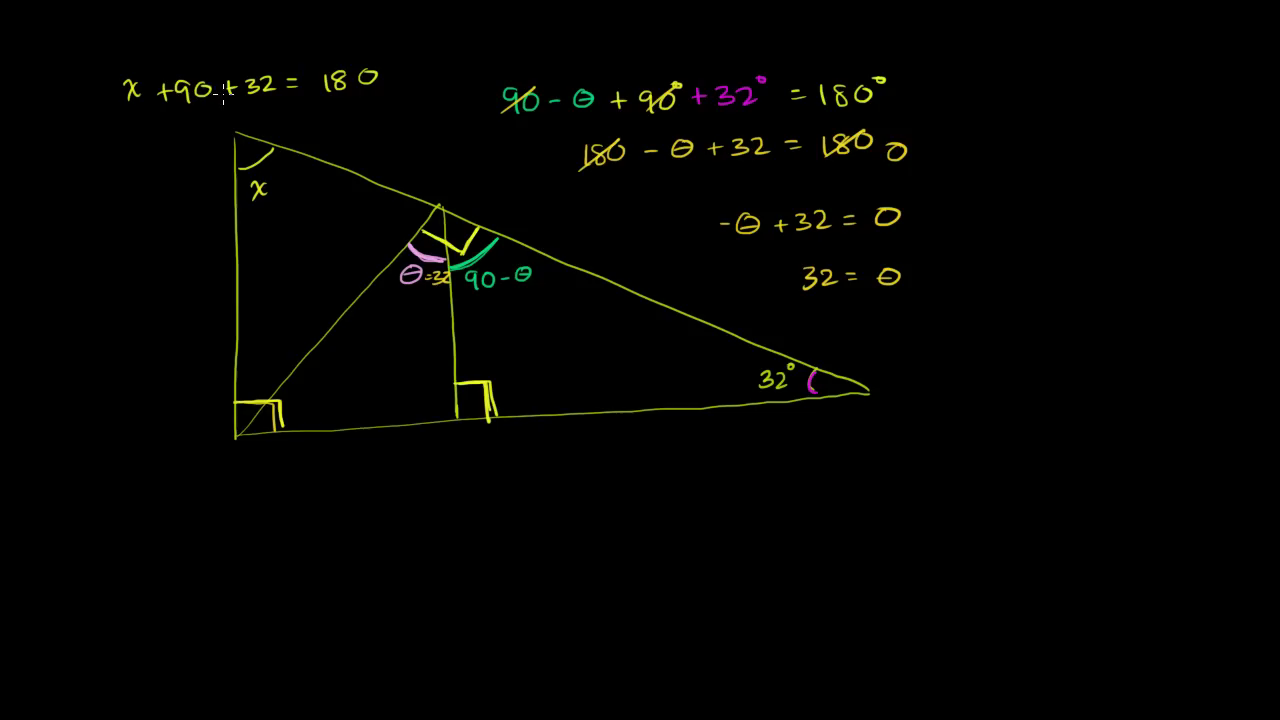 x + 90 + 32 = 180
90 - θ + 90° + 32° = 180°
180 - θ + 32 = 180 0
x
-θ + 32 = 0
θ = 32 90 - θ
32 = θ
32°